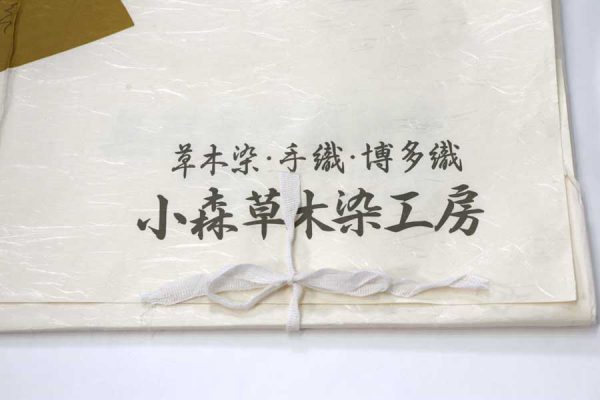 草木染・手織・博多織
小森草木染工房